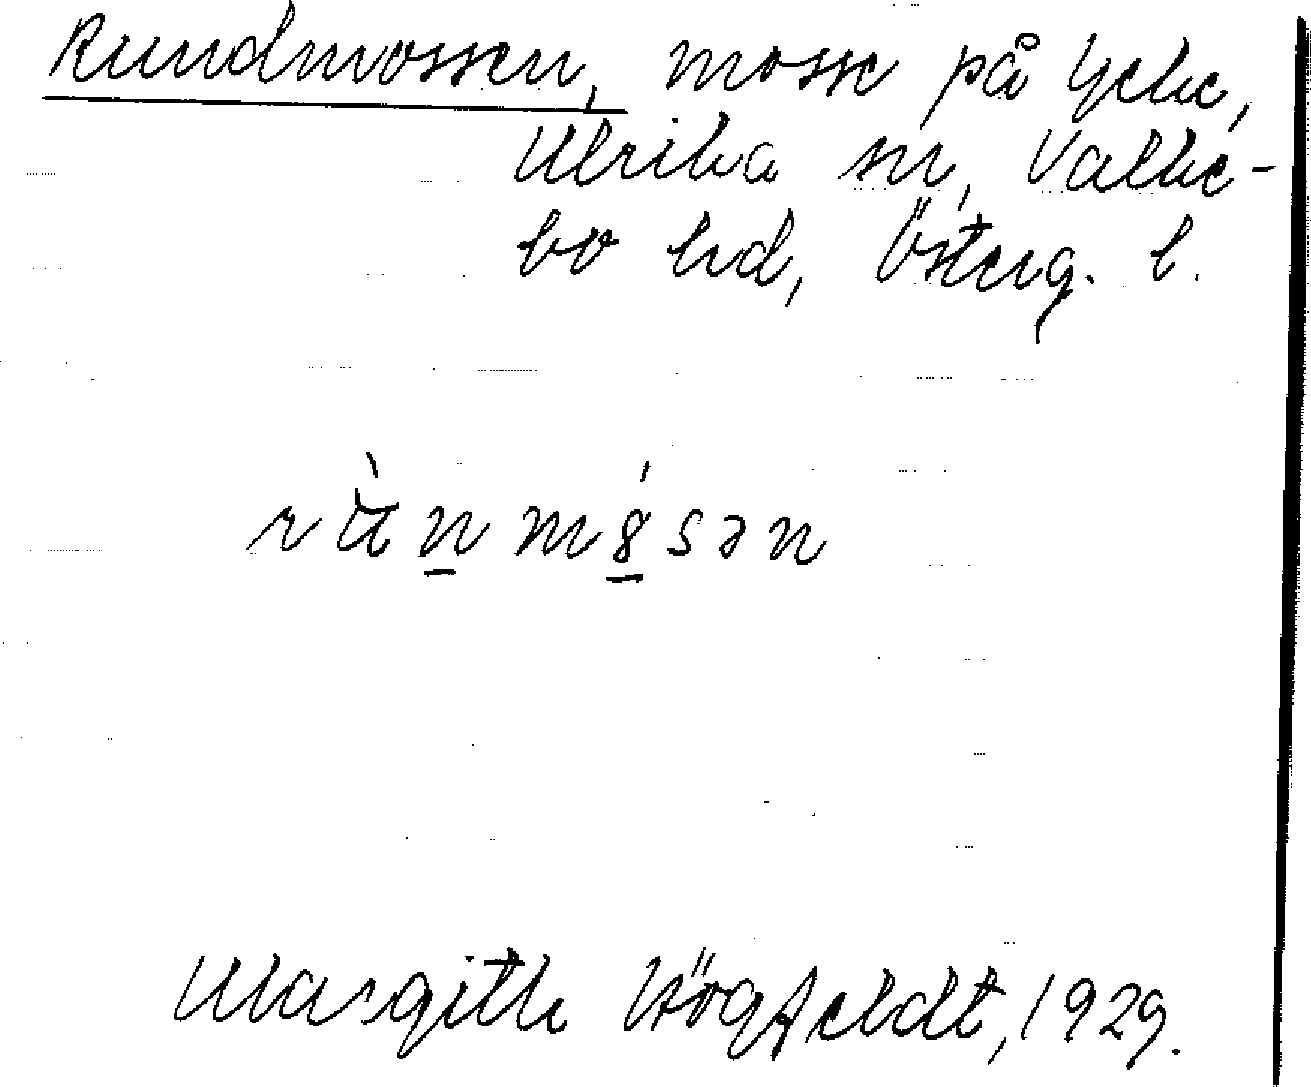 Rundmossen, mosse på Ycke,
Ulrika sn, Valke-
bo hd, Österg. l.
rùnm8́sən
Margith Högfeldt, 1929.